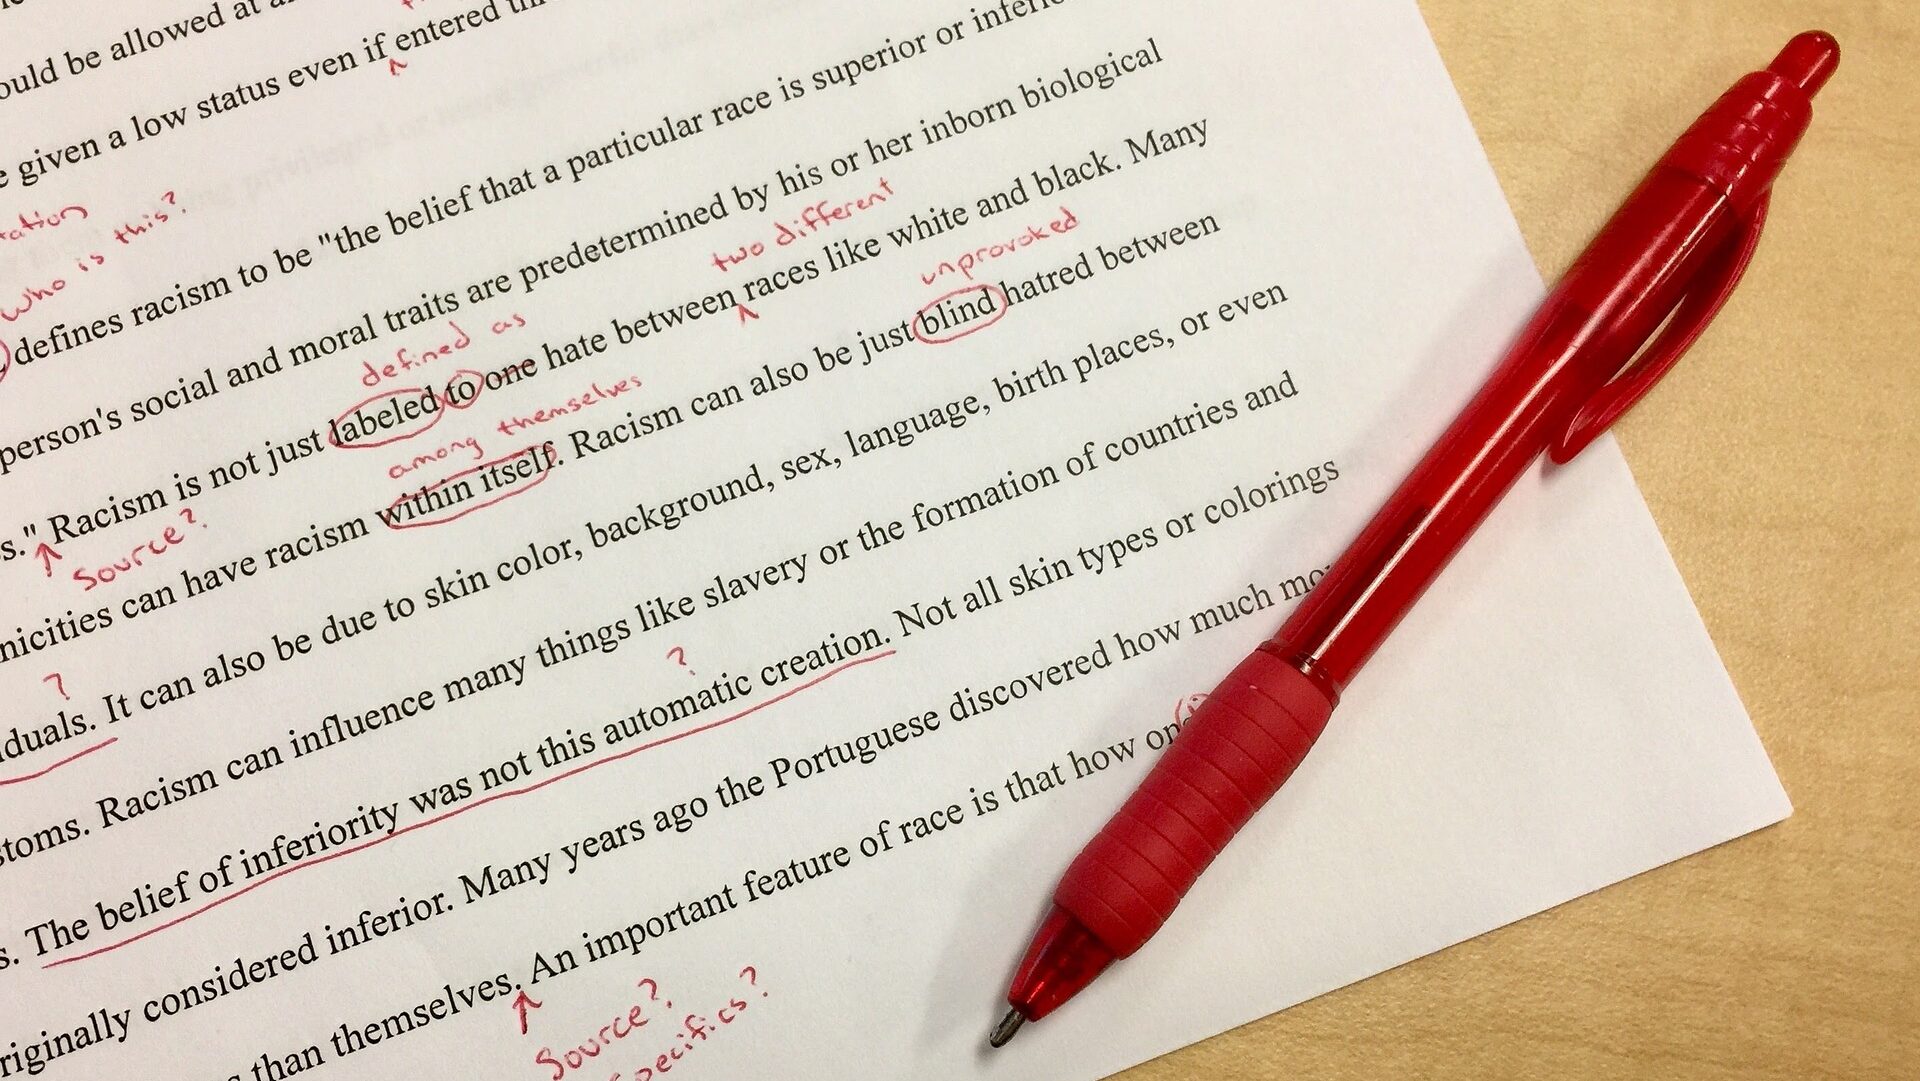 ould be allowed at
given a low status even if entered
Who is this?
defines racism to be "the belief that a particular race is superior or
person's social and moral traits are predetermined by his or her inborn biological
defined as
two different
s." Racism is not just labeled to one hate between races like white and black. Many
Source?
among themselves
unprovoked
nicities can have racism within itself. Racism can also be just blind hatred between
?
duals. It can also be due to skin color, background, sex, language, birth places, or even
stoms. Racism can influence many things like slavery or the formation of countries and
?
s. The belief of inferiority was not this automatic creation. Not all skin types or colorings
riginally considered inferior. Many years ago the Portuguese discovered how much
than themselves. An important feature of race is that how
Source?
specifics?